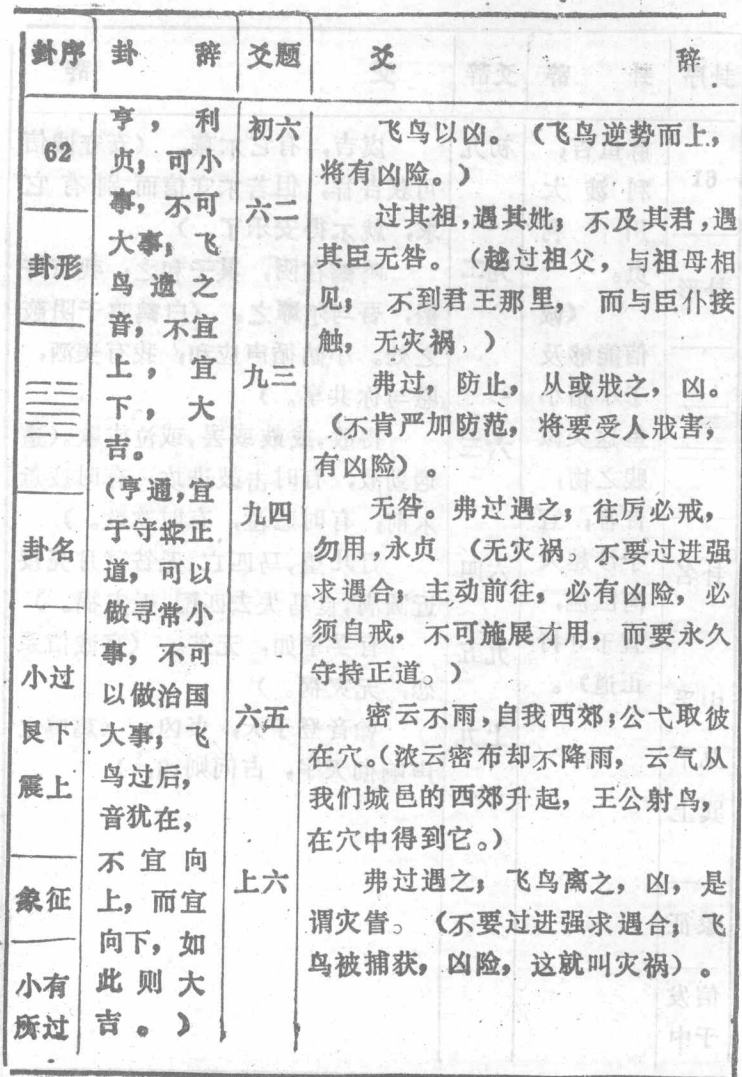 卦序 卦 辞 爻题 爻 辞
62
卦形
卦名
小过
艮下
震上
象征
小有
所过
亨， 利
贞；可小
事，不可
大事；飞
鸟遗之
音，不宜
上，宜
下，大
吉。
（亨通，宜
于守紫正
道，可以
做寻常小
事，不可
以做治国
大事；飞
鸟过后，
音犹在，
不宜向
上，而宜
向下，如
此则大
吉。）
初六
六二
九三
九四
六五
上六
飞鸟以凶。（飞鸟逆势而上，
将有凶险。）
过其祖，遇其妣；不及其君，遇
其臣无咎，（越过祖父，与祖母相
见；不到君王那里，而与臣仆接
触，无灾祸。）
弗过，防止，从或戕之，凶。
（不肯严加防范，将要受人戕害，
有凶险）。
无咎。弗过遇之；往厉必戒，
勿用，永贞。（无灾祸，不要过进强
求遇合；主动前往，必有凶险，必
须自戒，不可施展才用，而要永久
守持正道。）
密云不雨，自我西郊；公弋取彼
在穴。（浓云密布却不降雨，云气从
我们城邑的西郊升起，王公射鸟，
在穴中得到它。）
弗过遇之；飞鸟离之，凶，是
谓灾眚。（不要过进强求遇合；飞
鸟被捕获，凶险，这就叫灾祸）。